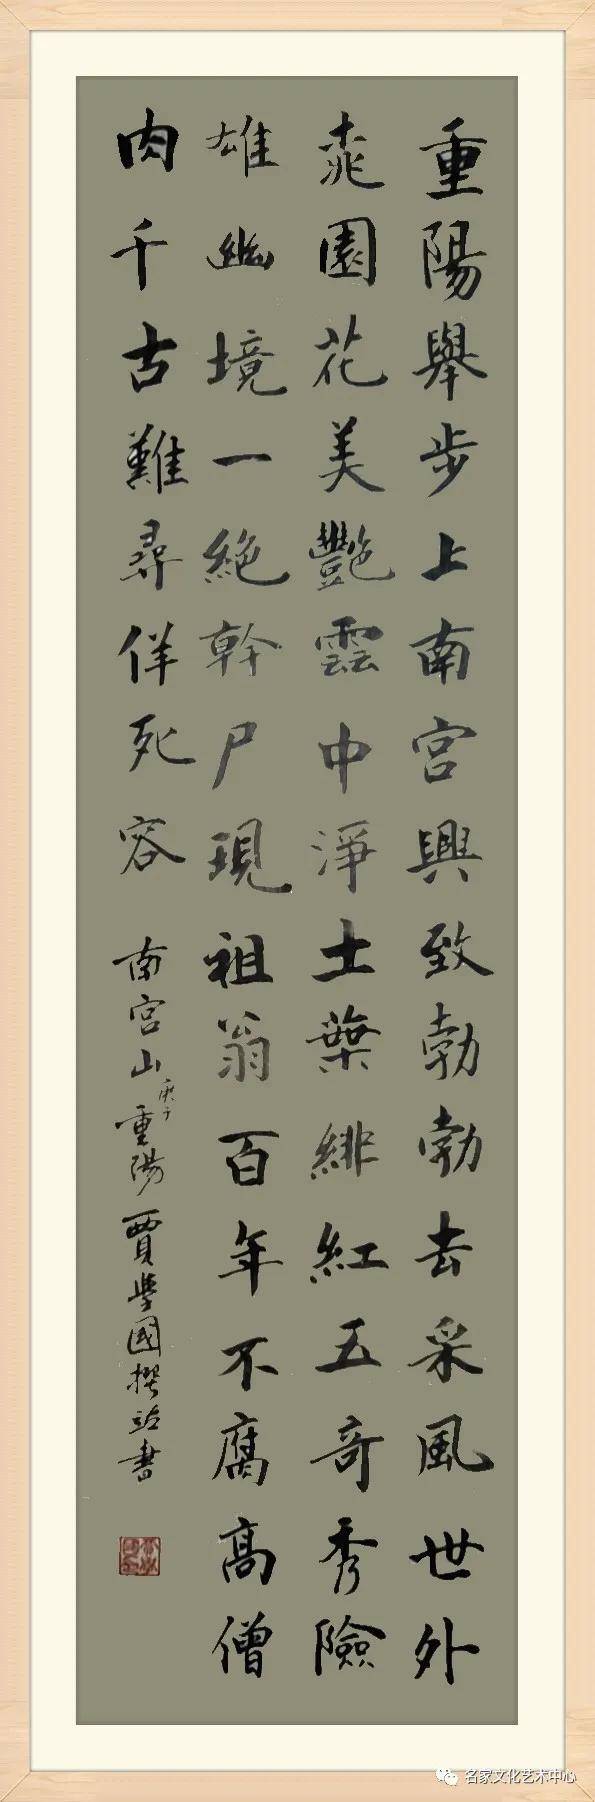 重陽舉步上南宫興致勃勃去采風世外
桃園花美艷雲中淨土葉緋紅五奇秀險
雄幽境一絕幹尸現祖翁百年不腐高僧
肉千古難尋佯死容 南宫山庚子重陽賈學國撰並書
名家文化艺术中心